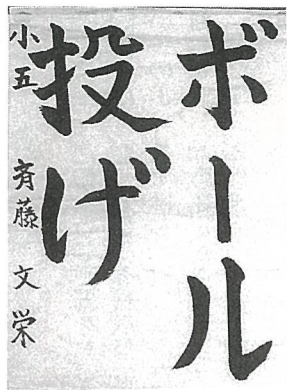 ボール
投げ
小五 斉藤文栄